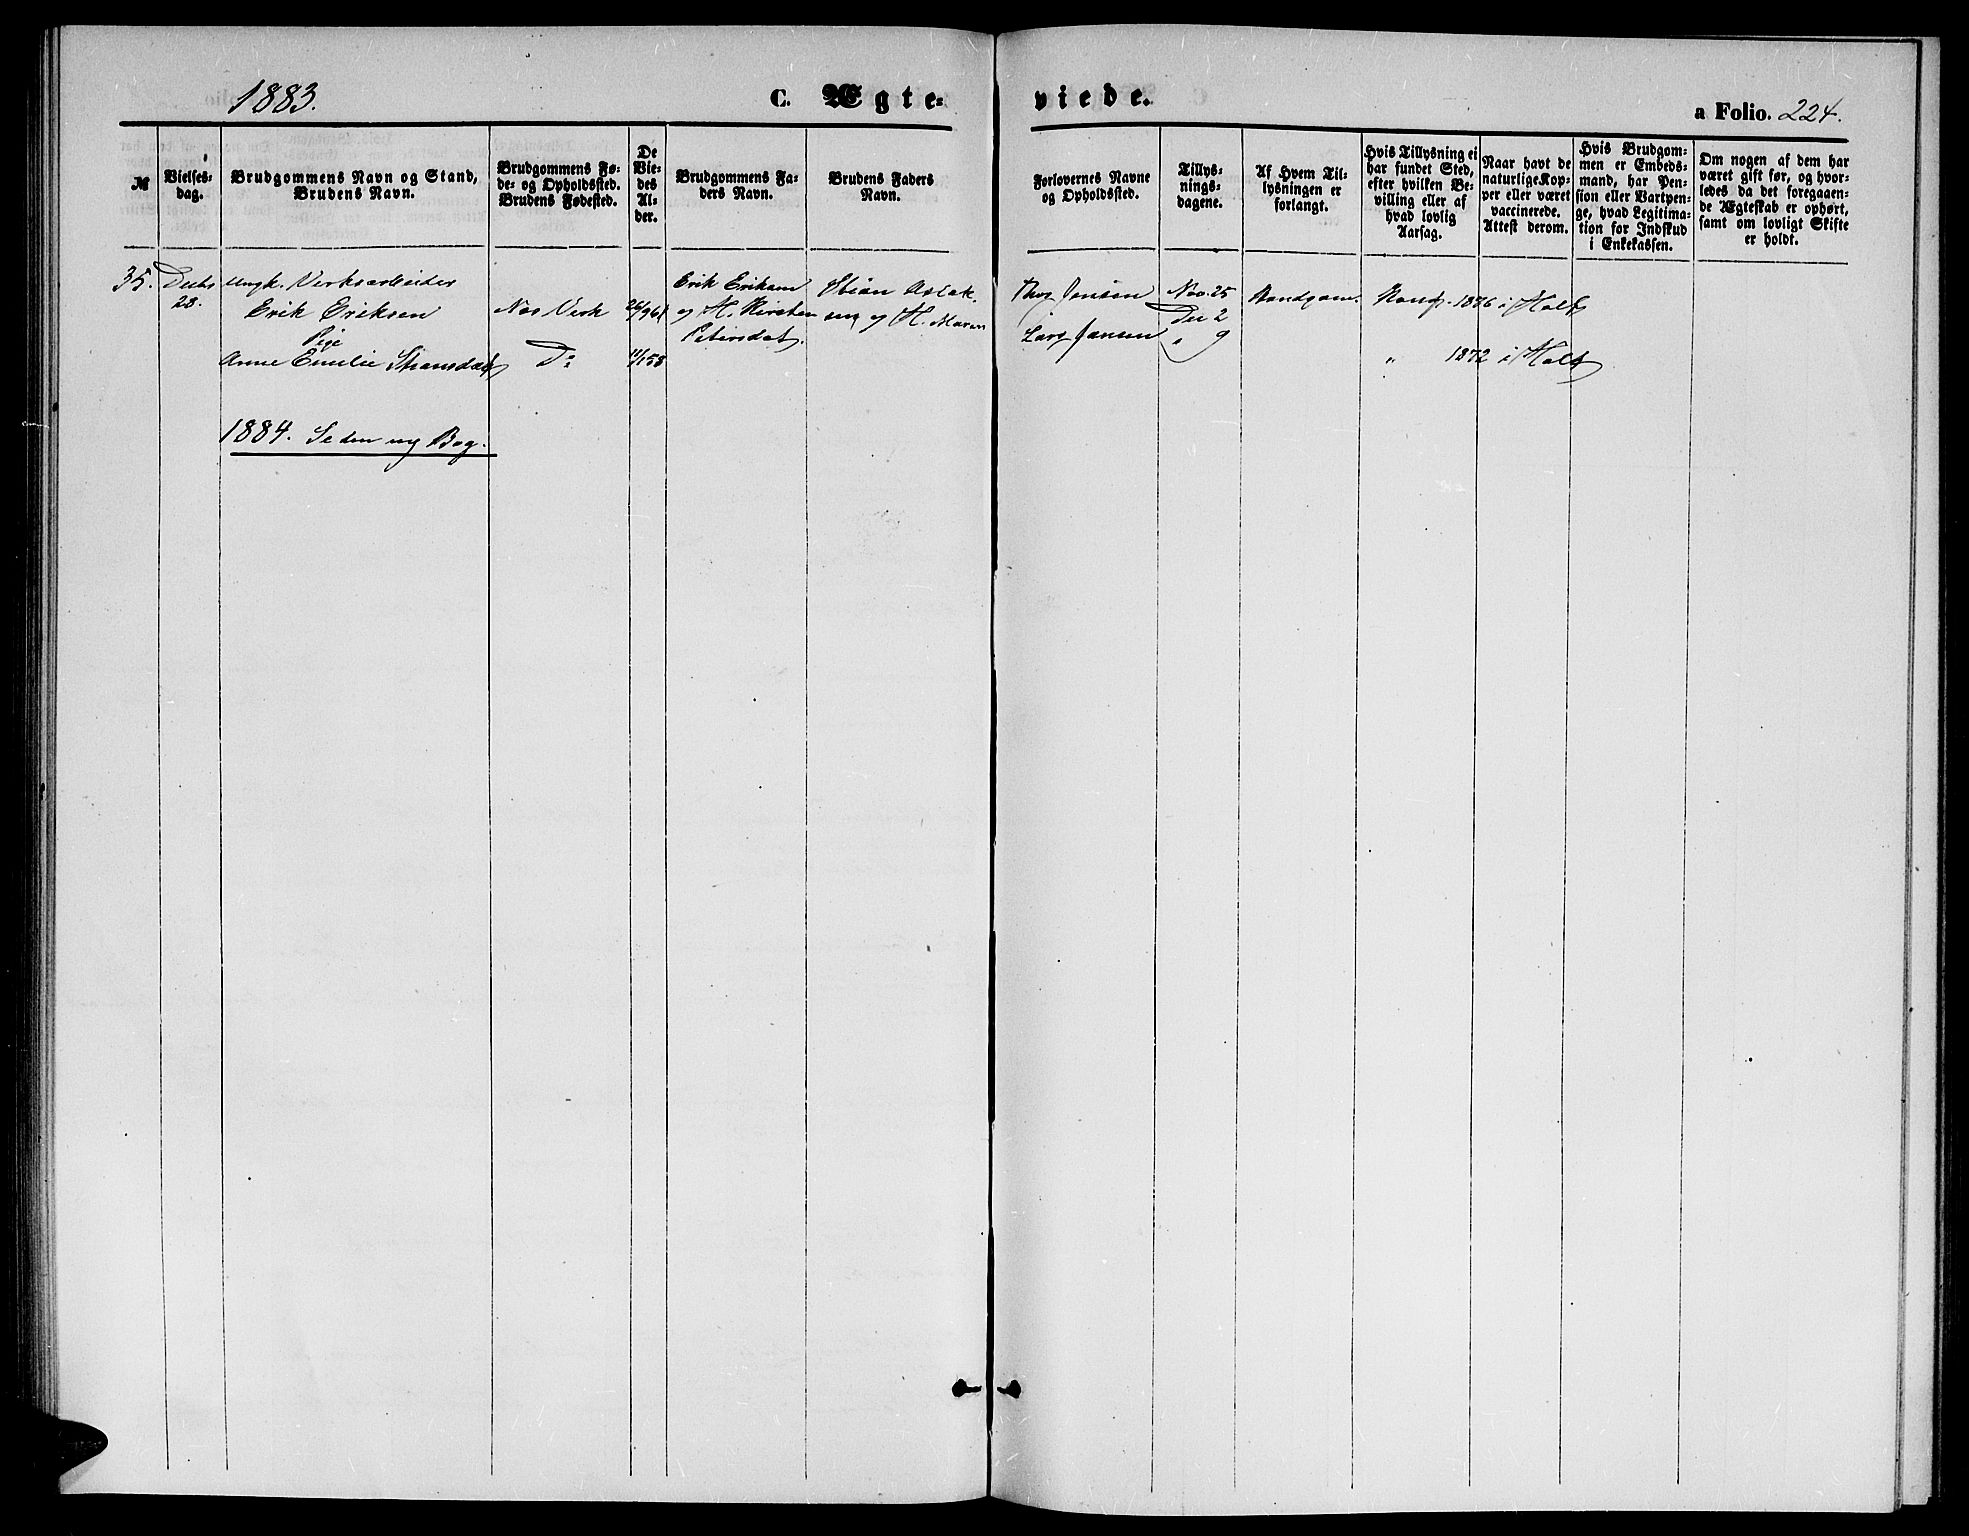 1883.
C. Ægte=
viede.
a Folio. 224.
№
Vielses-
dag.
Brudgommens Navn og Stand,
Brudens Navn.
Brudgommens Fø-
de- og Opholdssted.
Brudens Fødested.
De
Vie-
des
Al-
der.
Brudgommens Fa-
ders Navn.
Brudens Faders
Navn.
Forlovernes Navne
og Opholdssted.
Tillys-
nings-
dagene.
Af Hvem Til-
lysningen er
forlangt.
Hvis Tillysning ei
har fundet Sted,
efter hvilken Be-
villing eller af
hvad lovlig
Aarsag.
Naar havt de
naturlige Kop-
per eller været
vaccinerede.
Attest derom.
Hvis Brudgom-
men er Embeds-
mand, har Pen-
sion eller Vartpen-
ge, hvad Legitima-
tion for Indskud
i Enkekassen.
Om nogen af dem har
været gift før, og hvor-
ledes da det foregaaen-
de Ægteskab er ophørt,
samt om lovligt Skifte
er holdt.
35.
Decbr
28.
Ungk. Verksarbeider
Erik Eriksen
Pige
Anne Emilie Steansdat
Nes Verk
Do
11/1 58
Erik Eriksen
og H. Kirsten
Petersdat.
Stean Aslak
sen og H. Maren
Jensen
Lars Jansen
Nov. 25
Dec 2
" 9
Brudgom.
1876 i Holt
" 1872 i Holt
1884. Se den ny Bog.